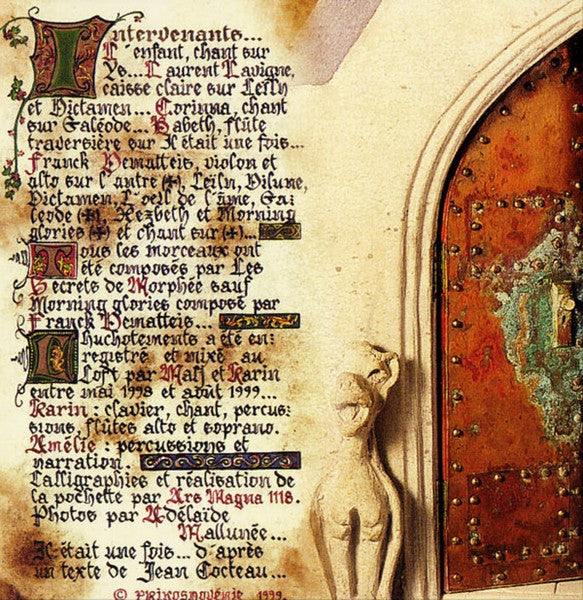 Intervenants...
L'enfant, chant sur
Ys... Laurent Lavigne,
caisse claire sur Leïln
et Dictamen... Corinna, chant
sur Galéode... Babeth, flûte
traversière sur Il était une fois...
Franck Dematteis, violon et
alto sur l'antre (+), Leïln, Disune,
Dictamen, L'oeil de l'âme, Ga-
leode (+), Nezbeth et Morning
glories (+) et chant sur (+)...
Tous les morceaux ont
été composés par Les
Secrets de Morphée sauf
Morning glories composé par
Franck Dematteis...
huchotements a été en-
registré et mixé au
Loft par Malj et Karin
entre mai 1998 et août 1999...
Karin : clavier, chant, percus-
sions, flûtes alto et soprano.
Amélie : percussions et
narration.
Calligraphies et réalisation de
la pochette par Ars Magna 1118.
Photos par Adélaïde
Mallunée...
Il était une fois... d'après
un texte de Jean Cocteau...
© PRIKOSNOVÉNIE 1999.